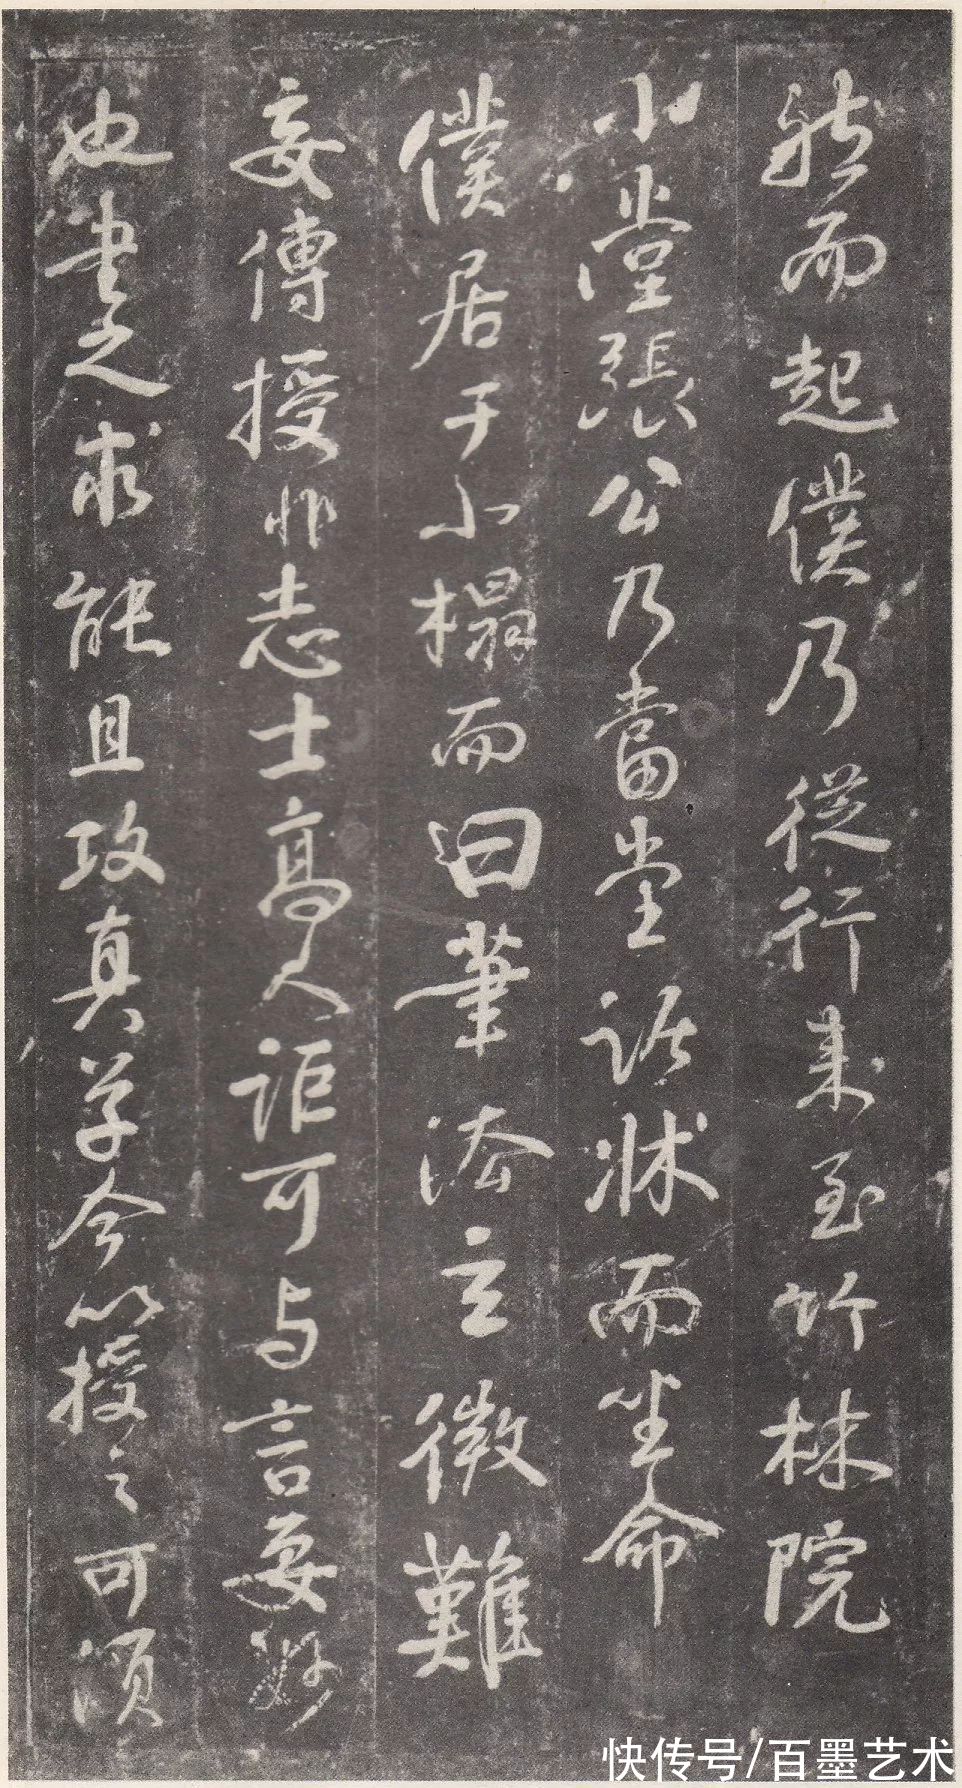 然而起僕乃從行来至竹林院
小堂張公乃當堂踞牀而坐命
僕居于小榻而曰筆法玄微難
妄傳授非志士高人詎可与言要妙
也書之求能且攻真草今以授之可須
快传号/百墨艺术